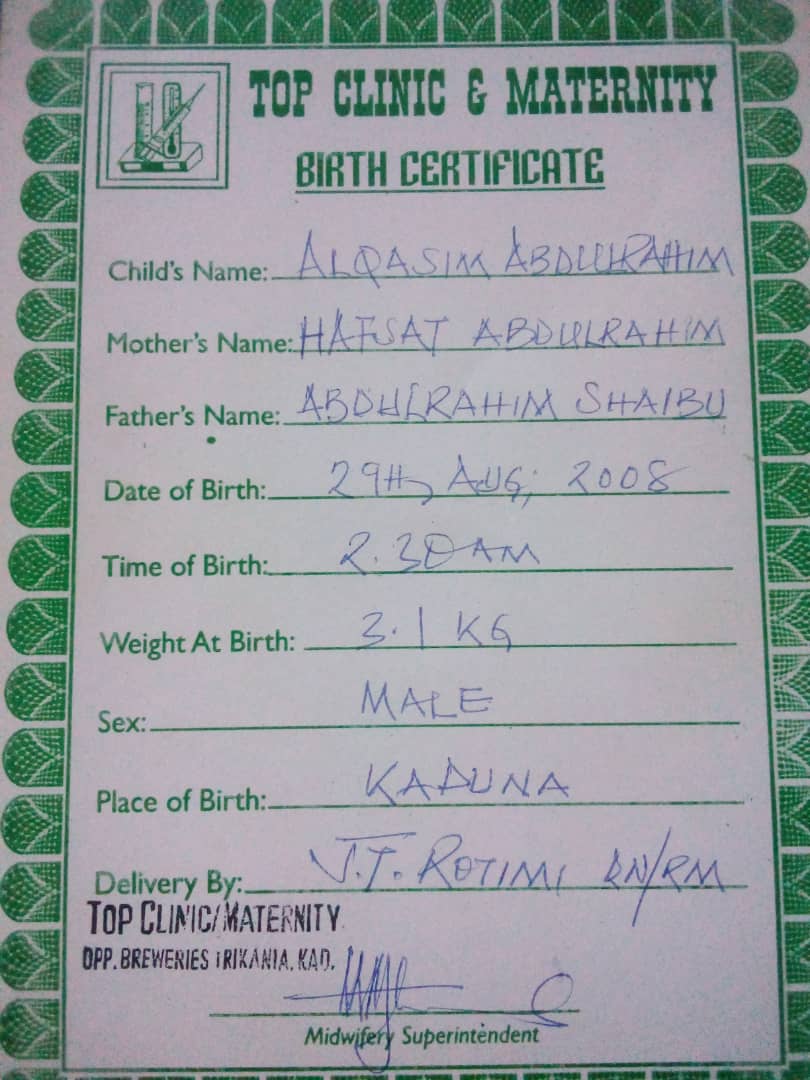 TOP CLINIC & MATERNITY
BIRTH CERTIFICATE
Child's Name: ALQASIM ABDULRAHIM
Mother's Name: HAFSAT ABDULRAHIM
Father's Name: ABDULRAHIM SHAIBU
Date of Birth: 29th AUG, 2008
Time of Birth: 2.30AM
Weight At Birth: 3.1 KG
Sex: MALE
Place of Birth: KADUNA
Delivery By: J.T. ROTIMI RN/RM
TOP CLINIC/MATERNITY
OPP. BREWERIES TRIKANIA, KAD.
Midwifery Superintendent